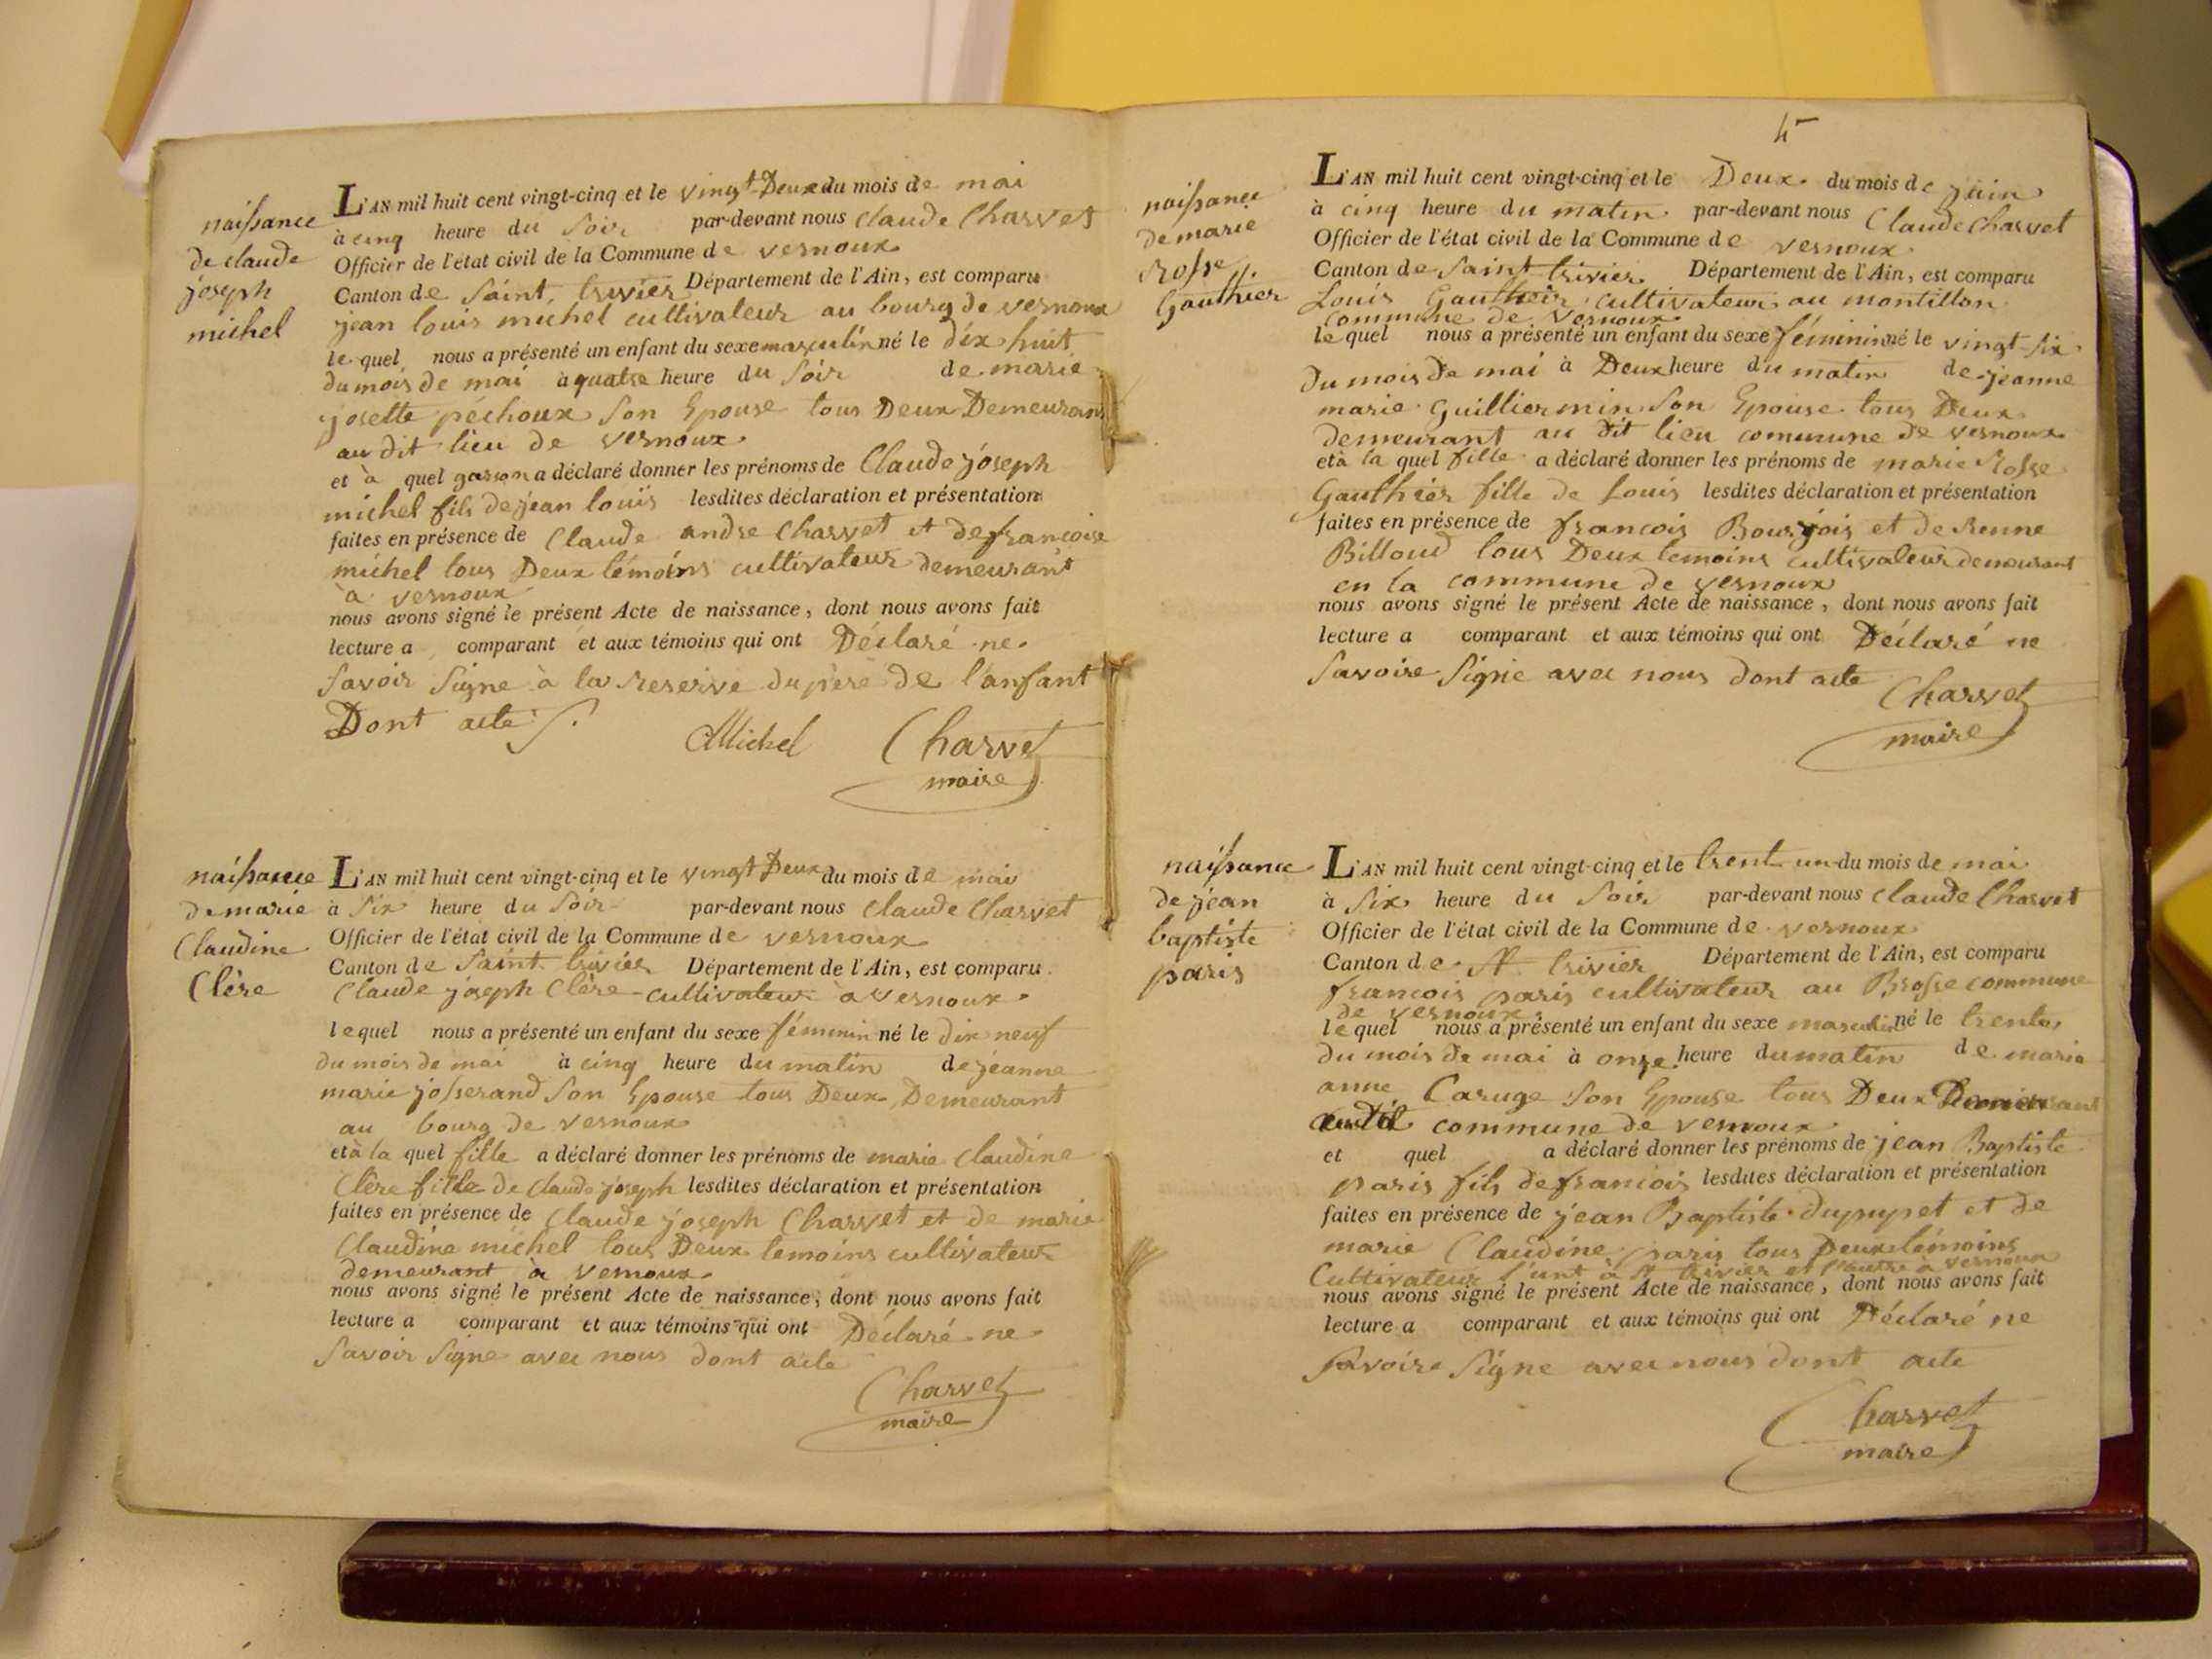 naissance
de claude
joseph
michel
L'AN mil huit cent vingt-cinq et le vingt Deux du mois de mai
à cinq heure du soir par-devant nous Claude Charvet
Officier de l'état civil de la Commune de vernoux
Canton de Saint trivier Département de l'Ain, est comparu
jean louis michel cultivateur au bourg de vernoux
le quel nous a présenté un enfant du sexe masculin né le dix huit
du mois de mai à quatre heure du soir de marie
josette péchoux son Epouse tous Deux Demeurant
au dit lieu de vernoux
et à quel garson a déclaré donner les prénoms de Claude joseph
michel fils de jean louis lesdites déclaration et présentation
faites en présence de Claude andre Charvet et de francoise
michel tous Deux témoins cultivateur demeurant
à vernoux
nous avons signé le présent Acte de naissance, dont nous avons fait
lecture a comparant et aux témoins qui ont Déclaré ne
savoir signe à la reserve du père de l'anfant
Dont acte
Michel Charvet
maire
naissance
de marie
Claudine
Clère
L'AN mil huit cent vingt-cinq et le vingt Deux du mois de mai
à six heure du soir par-devant nous Claude Charvet
Officier de l'état civil de la Commune de vernoux
Canton de Saint trivier Département de l'Ain, est comparu
Claude joseph Clère cultivateur à vernoux
lequel nous a présenté un enfant du sexe féminin né le dix neuf
du mois de mai à cinq heure du matin de jeanne
marie josserand son Epouse tous Deux Demeurant
au bourg de vernoux
et à la quel fille a déclaré donner les prénoms de marie Claudine
Clère fille de claude joseph lesdites déclaration et présentation
faites en présence de Claude joseph Charvet et de marie
Claudine michel tous Deux temoins cultivateur
demeurant à vernoux
nous avons signé le présent Acte de naissance, dont nous avons fait
lecture a comparant et aux témoins qui ont Déclaré ne
savoir signe avec nous dont acte
Charvet
maire
4
naissance
de marie
Rosse
Gauthier
L'AN mil huit cent vingt-cinq et le Deux du mois de juin
à cinq heure du matin par-devant nous Claude Charvet
Officier de l'état civil de la Commune de vernoux
Canton de Saint trivier Département de l'Ain, est comparu
Louis Gautheir cultivateur au montillon
commune de vernoux
le quel nous a présenté un enfant du sexe féminin né le vingt-six
du mois de mai à Deux heure du matin de jeanne
marie Guilliermin son Epouse tous Deux
demeurant au dit lieu commune de vernoux
et à la quel fille a déclaré donner les prénoms de marie Rosse
Gauthier fille de Louis lesdites déclaration et présentation
faites en présence de francois Bourjois et de Renne
Billoud tous Deux temoins cultivateur demeurant
en la commune de vernoux
nous avons signé le présent Acte de naissance, dont nous avons fait
lecture a comparant et aux témoins qui ont Déclaré ne
savoire signe avec nous dont acte
Charvet
maire
naissance
de jean
baptiste
paris
L'AN mil huit cent vingt-cinq et le trent un du mois de mai
à six heure du soir par-devant nous Claude Charvet
Officier de l'état civil de la Commune de vernoux
Canton de St trivier Département de l'Ain, est comparu
francois paris cultivateur au Brosse commune
de vernoux
lequel nous a présenté un enfant du sexe masculin né le trente
du mois de mai à onze heure du matin de marie
anne Caruge son Epouse tous Deux Demeurant
commune de vernoux
et quel a déclaré donner les prénoms de jean Baptiste
paris fils de francois lesdites déclaration et présentation
faites en présence de jean Baptiste dupupet et de
marie Claudine paris tous Deux témoins
Cultivateur l'unt à St trivier et l'autre à vernoux
nous avons signé le présent Acte de naissance, dont nous avons fait
lecture a comparant et aux témoins qui ont Déclaré ne
savoire signe avec nous dont acte
Charvet
maire